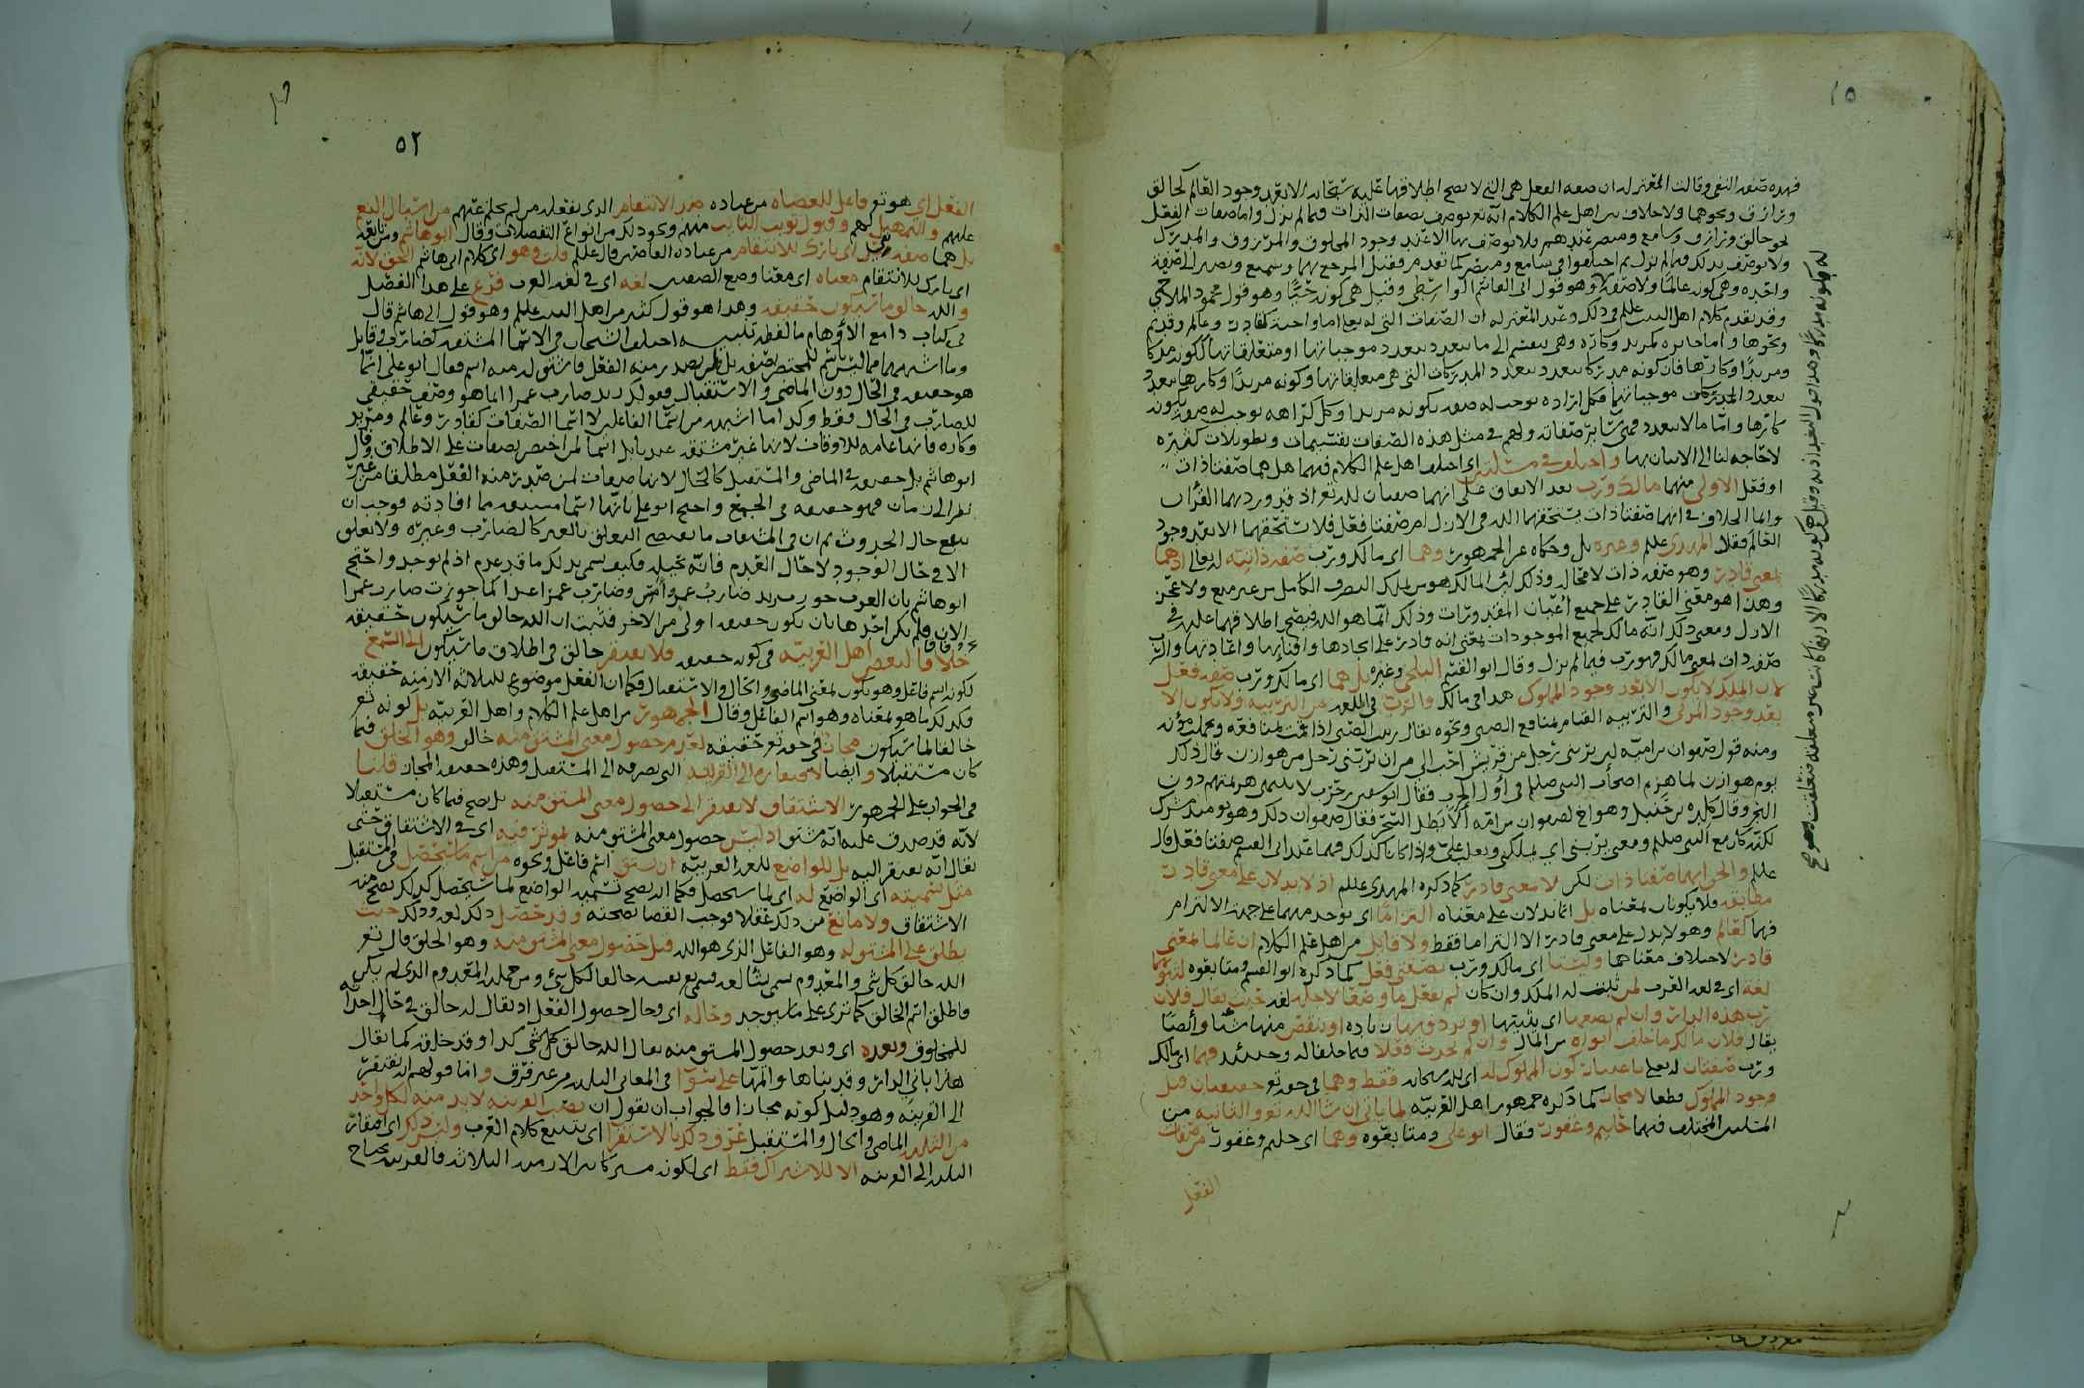 فهذه صفة النفي وقالت المعتزلة ان صفة الفعل هي التي لا يصح اطلاقها عليه سبحانه الا بعد وجود العالم كخالق
ورازق ونحوهما ولا خلاف بين اهل علم الكلام انه تع يوصف بصفات الذات فيما لم يزل واما صفات الفعل
نحو خالق ورازق وسامع ومبصر عندهم فلا يوصف بها الا عند وجود المخلوق والمرزوق والمدرك
ولا يوصف بذلك فيما لم يزل ثم اختلفوا في سامع ومبصر كما تقدم فقيل المرجع بهما وبسميع وبصير الى صفة
واحدة وهي كونه عالما ولا صفة وهو قول ابي القاسم الواسطي وقيل هي كونه حيا وهو قول محمود الملاحمي
وقد تقدم كلام اهل البيت علم في ذلك وعند المعتزلة ان الصفات التي له تع اما واجبة كقادر وعالم وقديم
ونحوها واما جايزة كمريد وكاره وهي تنقسم الى ما يتعدد بتعدد موجباتها او متعلقاتها ككونه مدركا
ومريدا وكارها فان كونه مدركا يتعدد بتعدد المدركات التي هي متعلقاتها وكونه مريدا وكارها يتعدد
بتعدد موجباتها فكل ارادة توجب له صفة بكونه مريدا وكل كراهة توجب له صفة بكونه
كارها واما ما لا يتعدد فهي ساير صفاته ولهم في مثل هذه الصفات تقسيمات وتطويلات كثيرة
لا حاجة لنا الى الاتيان بها واختلف في مسئلتين اي اختلف اهل علم الكلام فيهما هل هما صفتا ذات
او فعل الاولى منهما مالك ورب بعد الاتفاق على انهما صفتان لله تع اذ قد ورد بهما القرآن
وانما الخلاف في انهما صفتا ذات يستحقهما الله في الازل ام صفتا فعل فلا يستحقهما الا بعد وجود
العالم فقال المهدي علم وغيره بل وحكاه عن الجمهور وهما اي مالك ورب صفة ذاتية له تعالى اذ هما
بمعنى قادر وهو صفة ذات لا محالة وذلك لان المالك هو من يملك التصرف الكامل من غير منع ولا عجز
وهذا هو معنى القادر على جميع اعيان المقدورات وذلك انما هو الله فيصح اطلاقهما عليه في
الازل ومعنى ذلك انه مالك لجميع الموجودات بمعنى انه قادر على ايجادها وافنائها واعادتها والرب
صفة ذات بمعنى مالك فهو رب فيما لم يزل وقال ابو القسم البلخي وغيره بل هما اي مالك ورب صفة فعل
لان الملك لا يكون الا بعد وجود المملوك هذا في مالك والرب في اللغة من التربية ولا يكون الا
بعد وجود المربى والتربية القيام بمنافع الصبي ونحوه يقال رببت الصبي اذا قمت بمنافعه وتحملت مؤنه
ومنه قول صفوان بن امية لان يربني رجل من قريش احب الي من ان يربني رجل من هوازن قال ذلك
يوم هوازن لما هزم اصحاب النبي صلعم في اول الحرب فقال ابو سفين بن حرب لا تنتهي هزيمتهم دون
البحر وقال كلدة بن حنبل وهو اخ لصفوان بن امية الا بطل السحر فقال صفوان ذلك وهو يومئذ مشرك
لكنه كان مع النبي صلعم ومعنى يربني اي يملكني ويغلب علي واذا كانا كذلك فهما عند ابي القسم صفتا فعل قال
علم والحق انهما صفتا ذات لكن لا بمعنى قادر كما ذكره المهدي علم اذ لا يدلان على معنى قادر
مطابقة فلا يكونان بمعناه بل انما يدلان على معناه التزاما اي يوجد منهما على جهة الالتزام
فهما كعالم وهو لا يدل على معنى قادر الا التزاما فقط ولا قايل من اهل علم الكلام ان عالما بمعنى
قادر لاختلاف معناهما وليستا اي مالك ورب بصفتي فعل كما ذكره ابو القسم ومتابعوه لثبوتهما
لغة اي في لغة العرب لمن ثبت له الملك وان كان لم يفعل ما وضعا لاجله لغة حيث يقال فلان
رب هذه الدار وان لم يصنعها اي يبنيها او يزد فيها زيادة او ينقص منها شيئا وايضا
يقال فلان مالك ما خلف ابواه من المال وان لم يحدث فعلا فيما خلفا له وحينئذ فهما اي مالك
ورب صفتان له تعالى باعتبار كون المملوك له اي لله سبحانه فقط وهما في حقه تع حقيقتان قبل
وجود المملوك قطعا لا مجاز كما ذكره جمهور اهل العربية لما ياتي ان شا الله تع والثانية من
المسئلتين المختلف فيهما حليم وغفور فقال ابو علي ومتابعوه وهما اي حليم وغفور من صفات
الفعل
٥٢
الفعل اي هو تع فاعل للعصاة من عباده ضد الانتقام الذي يفعله من لم يحلم عنهم من اسبال النعم
عليهم والتمهيل لهم وقبول توبة التايب منهم ونحو ذلك من انواع التفضلات وقال ابو هاشم ومن تابعه
بل هما صفة نفي اي تارك للانتقام من عباده العاصين قال علم قلت وهو اي كلام ابي هاشم الحق لانه
اي تارك للانتقام معناه اي معنا وضع الصفتين لغة اي في لغة العرب فرع على هذا الفصل
والله خالق ما سيكون حقيقة وهذا هو قول كثير من اهل البيت علم وهو قول ابي هاشم قال
في كتاب دامغ الاوهام ما لفظه تنبيه اختلف الشيخان في الاسما المشتقة كضارب وقاتل
وما اشبههما مما ليس باسم لمختص بصفة بل لمن يصدر منه الفعل فاشتق له منه اسم فقال ابو علي انما
هو حقيقة في الحال دون الماضي والاستقبال فقولك زيد ضارب عمرا انما هو وصف حقيقي
للضارب في الحال فقط وكذا ما اشبهه من اسما الفاعلين لا اسما الصفات كقادر وعالم ومريد
وكاره فانها عامة للاوقات لانها غير مشتقة عنده بل اسما لمن اختص بصفات على الاطلاق وقال
ابو هاشم بل حقيقة في الماضي والمستقبل كالحال لانها صفات لمن صدر منه الفعل مطلقا من غير
نظر الى زمان فهو حقيقة في الجميع واحتج ابو علي بانها اسما مشتقة مما افادته فوجب ان
تتبع حال الحدوث ثم ان في المشتقات ما يقتضي التعلق بالغير كالضارب وغيره ولا تعلق
الا في حال الوجود لا حال العدم فانه يحيله فكيف يسمى بذلك ما قد عدم او لم يوجد واحتج
ابو هاشم بان العرب جوزت زيد ضارب عمرو امس وضارب عمرا غدا كما جوزت ضارب عمرا
الان فلم يكن احدها بان يكون حقيقة اولى من الاخر فثبت ان الله خالق ما سيكون حقيقة
خلافا لبعض اهل العربية في كونه حقيقة فلا يفتقر خالق في اطلاق ما سيكون الى السمع
لكونه اسم فاعل وهو يكون بمعنى الماضي والحال والاستقبال فكما ان الفعل موضوع للثلاثة الازمنة حقيقة
فكذلك ما هو بمعناه وهو اسم الفاعل وقال الجمهور من اهل علم الكلام واهل العربية بل كونه تع
خالقا لما سيكون مجاز في حقه تع حقيقة لعدم حصول معنى المشتق منه خالق وهو الخلق فيما
كان مستقبلا وايضا لافتقاره الى القرينة التي تصرفه الى المستقبل وهذه حقيقة المجاز قلنا
في الجواب على الجمهور الاشتقاق لا يفتقر الى حصول معنى المشتق منه بل يصح فيما كان مستقبلا
لانه قد صدق عليه انه مشتق اذ ليس حصول معنى المشتق منه بموثر فيه اي في الاشتقاق حتى
يقال انه يفتقر اليه بل للواضع للغة العربية ان يشتق اسم فاعل ونحوه من اسم ما سيحصل في المستقبل
مثل تسميته اي الواضع له اي لما سيحصل فكما انه يصح تسمية الواضع لما سيحصل كذلك يصح منه
الاشتقاق ولا مانع من ذلك عقلا فوجب القضا بصحته وقد حصل ذلك لغة وذلك حيث
يطلق على المشتق له وهو الفاعل الذي هو الله قبل حصول معنى المشتق منه وهو الخلق قال تع
الله خالق كل شي والمعدوم يسمى شيئا لغة فسمى تع نفسه خالقا لكل شي ومن جملته المعدوم الذي لم يكن
فاطلق اسم الخالق كما ترى على ما سيوجد وحاله اي وحال حصول الفعل اذ يقال له خالق في حال احداثه
للمخلوق وبعده اي وبعد حصول المشتق منه يقال الله خالق كل شي كذا وقد خلقه كما يقال
هذا باني الدار وقد بناها والمهيا على سوا في المعاني الثلاثة من غير فرق واما قولهم انه يفتقر
الى القرينة وهو دليل كونه مجازا فالجواب ان نقول ان نصب القرينة لا بد منه لكل واحد
من الثلاثة الماضي والحال والمستقبل عرف ذلك بالاستقرا اي بتتبع كلام العرب وليس ذلك اي افتقار
الثلاثة الى القرينة الا للاشتراك فقط اي لكونه مشتركا بين الازمنة الثلاثة فالقرينة تحتاج